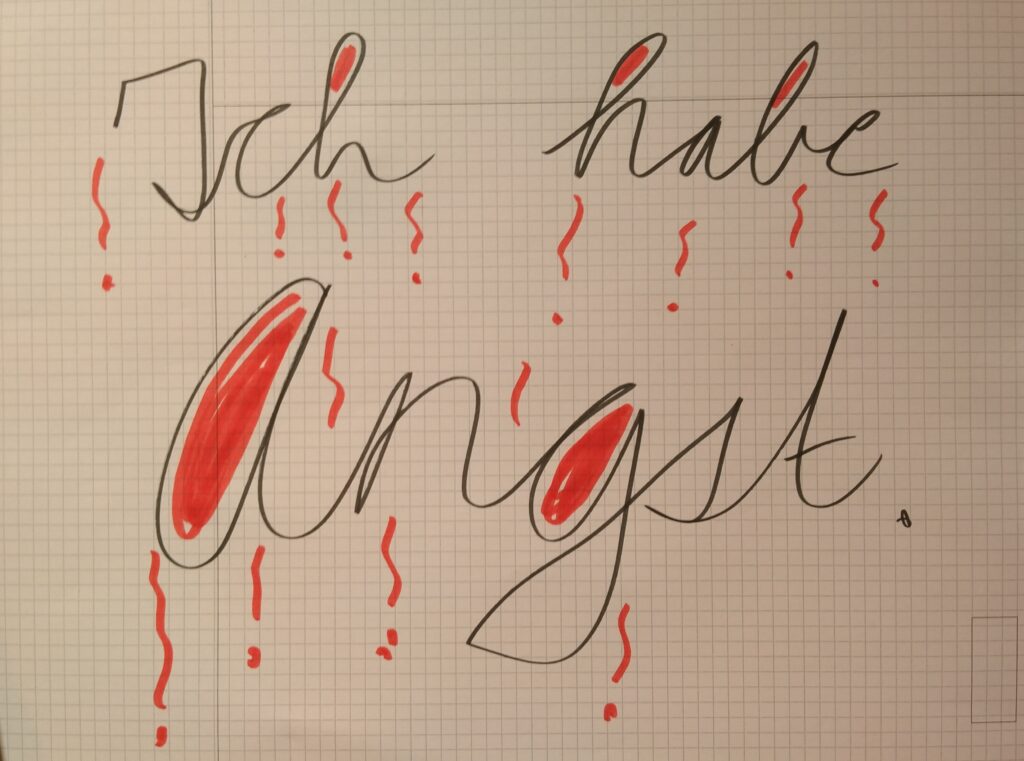 Ich habe
Angst.